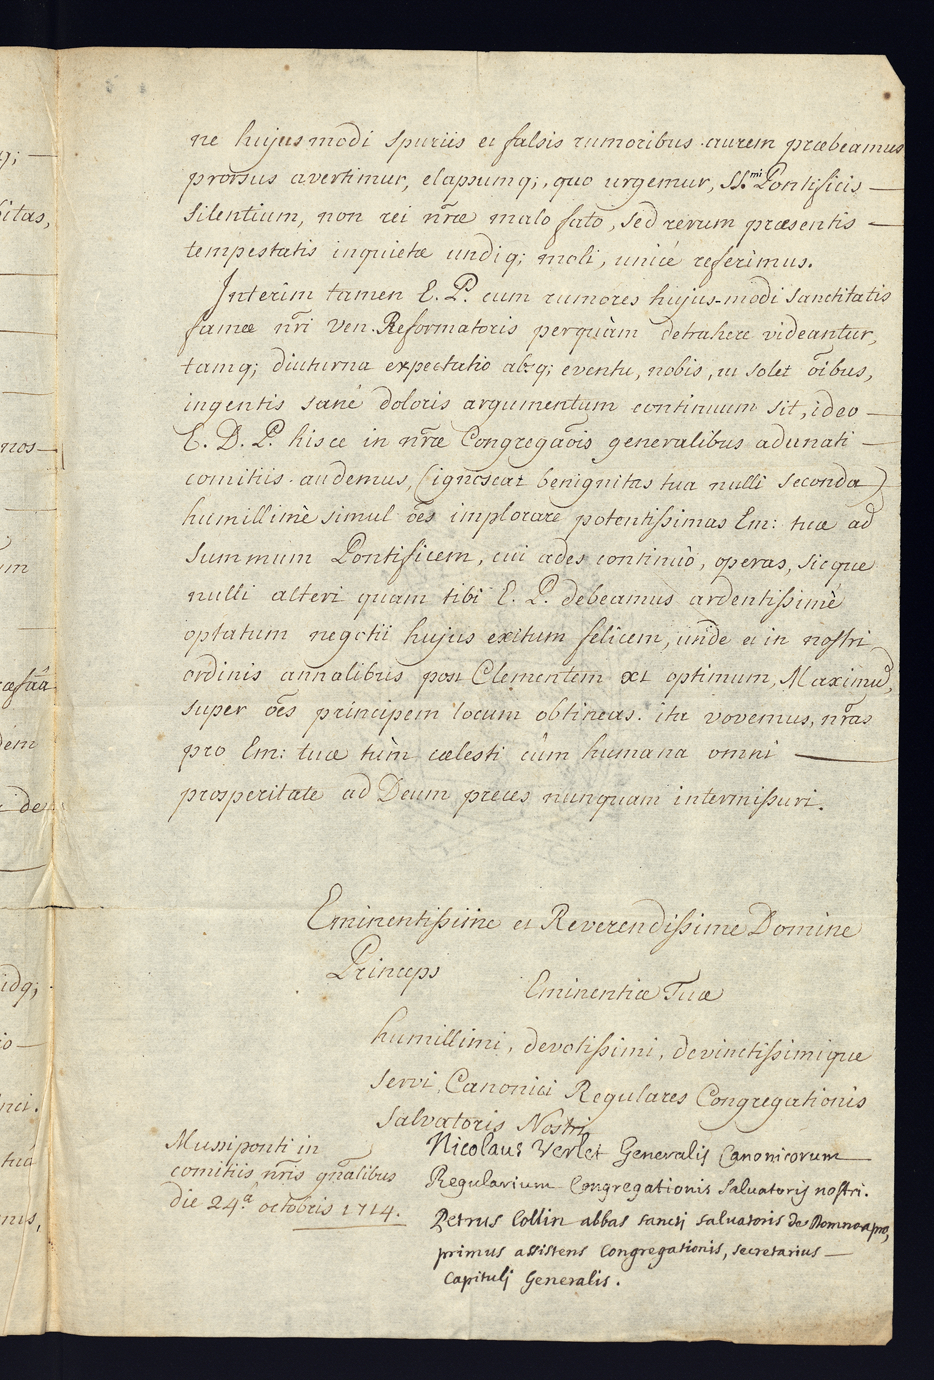 ne hujusmodi spuriis et falsis rumoribus aurem præbeamus
prorsus avertimur, elapsumq;, quo urgemur, SS.mi Pontificis —
silentium, non rei nr̃æ malo fato, sed rerum præsentis —
tempestatis inquietæ undiq; moli, unicé referimus.
Interim tamen E. P. cum rumores hujus-modi sanctitatis
famæ nr̃i Ven. Reformatoris perquàm detrahere videantur,
tamq; diuturna expectatio absq; eventu, nobis, ut solet oĩbus,
ingentis sané doloris argumentum continuum sit, ideo —
E. D. P. hisce in nr̃æ Congregaõis generalibus adunati —
comitiis audemus, (ignoscat benignitas tua nulli secunda)
humillimè simul oẽs implorare potentissimas Em: tuæ ad
Summum Pontificem, cui ades continuò, operas, sicque
nulli alteri quam tibi E. P. debeamus ardentissimè
optatum negotii hujus exitum felicem, unde et in nostri
ordinis annalibus post Clementem XI optimum, Maximũ,
super oẽs principem locum obtineas. ita vovemus, nr̃as
pro Em: tuæ tùm cælesti cùm humana omni —
prosperitate ad Deum preces nunquam intermissuri.
Eminentissime et Reverendissime Domine
Princeps
Eminentiæ Tuæ
humillimi, devotissimi, devinctissimique
servi, Canonici Regulares Congregationis
Salvatoris Nostri
Mussiponti in
comitiis nr̃is gñalibus
die 24.a octobris 1714.
Nicolaus Verlet Generalis Canonicorum
Regularium Congregationis Salvatoris nostri.
Petrus Collin abbas sancti salvatoris de
primus assistens Congregationis, secretarius —
Capituli Generalis.